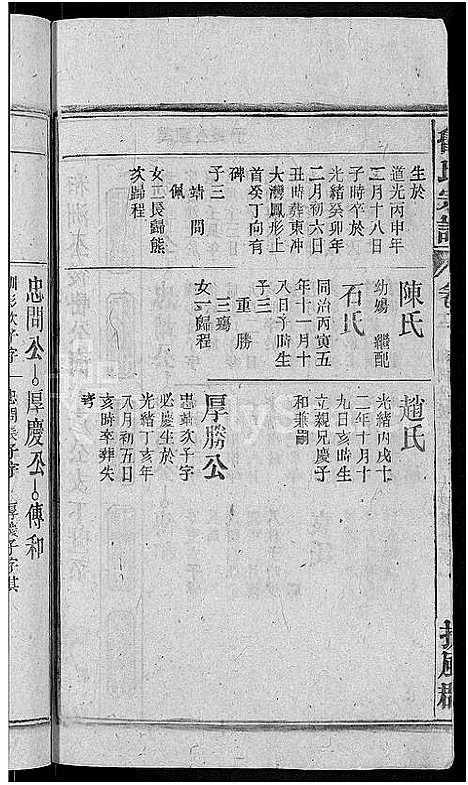 氏宗譜
扶風郡
生於
道光丙申年
二月十八日
子時卒於
光緒癸卯年
二月初六日
丑時葬東冲
大灣鳳形上
首癸丁向有
碑
子三
靖 問
佩
女二長歸熊
次歸程
陳氏
幼殤 繼配
石氏
同治丙寅五
年十一月十
八日子時生
子三
重勝
三殤
女一歸程
趙氏
光緒丙戌十
二年十月十
九日亥時生
立親兄慶子
和兼嗣
厚勝公
忠靖次子字
必慶生於
光緒丁亥年
八月初五日
亥時卒葬失
考
忠問公 厚慶公 傳和
次子字